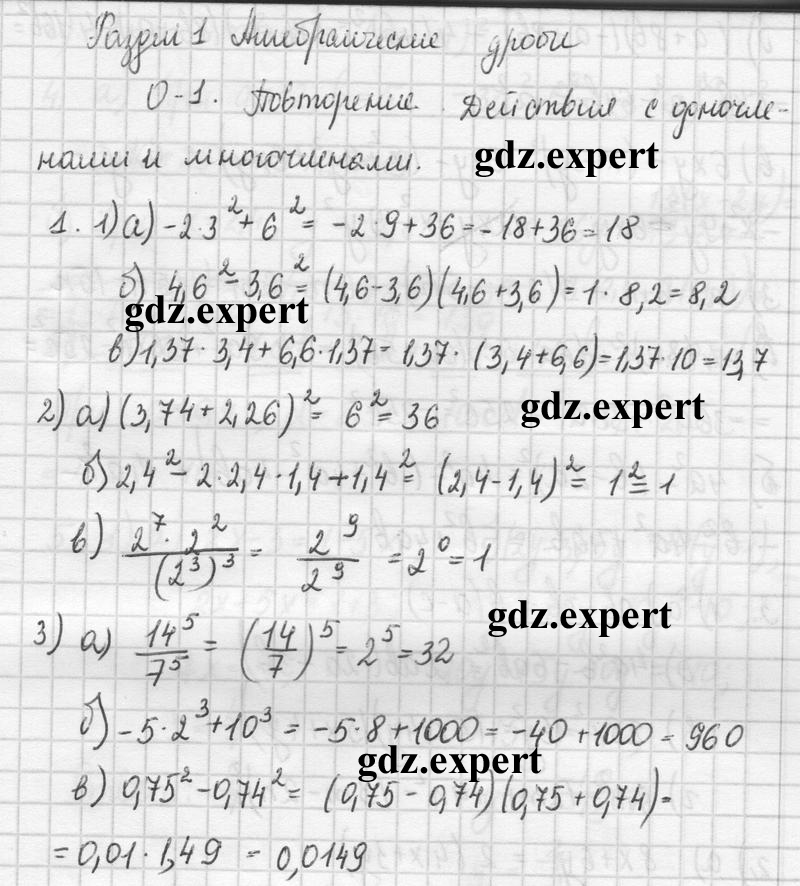 Раздел 1 Алгебраические дроби
О-1. Повторение. Действия с одночле-
нами и многочленами. gdz.expert
1. 1) а) -2·3² + 6² = -2·9+36 = -18+36 = 18
б) 4,6² - 3,6² = (4,6-3,6)(4,6+3,6) = 1·8,2 = 8,2
gdz.expert
в) 1,37·3,4+6,6·1,37 = 1,37·(3,4+6,6) = 1,37·10 = 13,7
2) а) (3,74+2,26)² = 6² = 36 gdz.expert
б) 2,4² - 2·2,4·1,4+1,4² = (2,4-1,4)² = 1² = 1
в) 2⁷·2²/(2³)³ = 2⁹/2⁹ = 2⁰ = 1
gdz.expert
3) а) 14⁵/7⁵ = (14/7)⁵ = 2⁵ = 32
б) -5·2³+10³ = -5·8+1000 = -40+1000 = 960
gdz.expert
в) 0,75² - 0,74² = (0,75-0,74)(0,75+0,74) =
= 0,01·1,49 = 0,0149